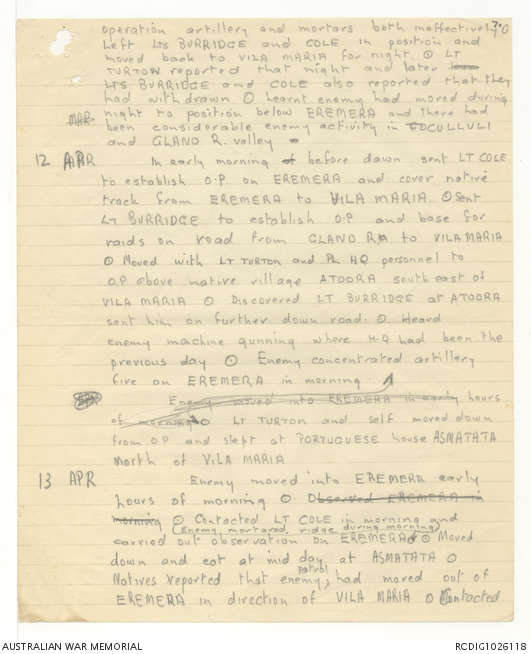 30
operation artillery and mortars both ineffective O
Left Lts BURRIDGE and COLE in position and
moved back to VILA MARIA for night. O Lt
TURTON reported that night and later
LTS BURRIDGE and COLE also reported that they
had withdrawn O Learnt enemy had moved during
night to position below EREMERA and there had
been considerable enemy activity in
and GLANO R. valley
12 APR In early morning before dawn sent LT COLE
to establish O.P on EREMERA and cover native
track from EREMERA to VILA MARIA. O Sent
LT BURRIDGE to establish O.P and base for
raids on road from GLANO R to VILA MARIA
O Moved with LT TURTON and PL HQ personnel to
O.P above native village ATOORA south east of
VILA MARIA O Discovered LT BURRIDGE at ATOORA
sent him on further down road. O Heard
enemy machine gunning where HQ had been the
previous day O Enemy concentrated artillery
fire on EREMERA in morning.
Enemy moved into EREMERA in early hours
of morning O LT TURTON and self moved down
from O.P and slept at PORTUGUESE house ASMATATA
North of VILA MARIA
13 APR Enemy moved into EREMERA early
hours of morning O Observed EREMERA in
morning O Contacted LT COLE in morning and
(Enemy mortared ridge during morning)
carried out observation on EREMERA O Moved
down and eat at mid day at ASMATATA O
Natives reported that enemy patrol had moved out of
EREMERA in direction of VILA MARIA O Contacted
AUSTRALIAN WAR MEMORIAL
RCDIG1026118